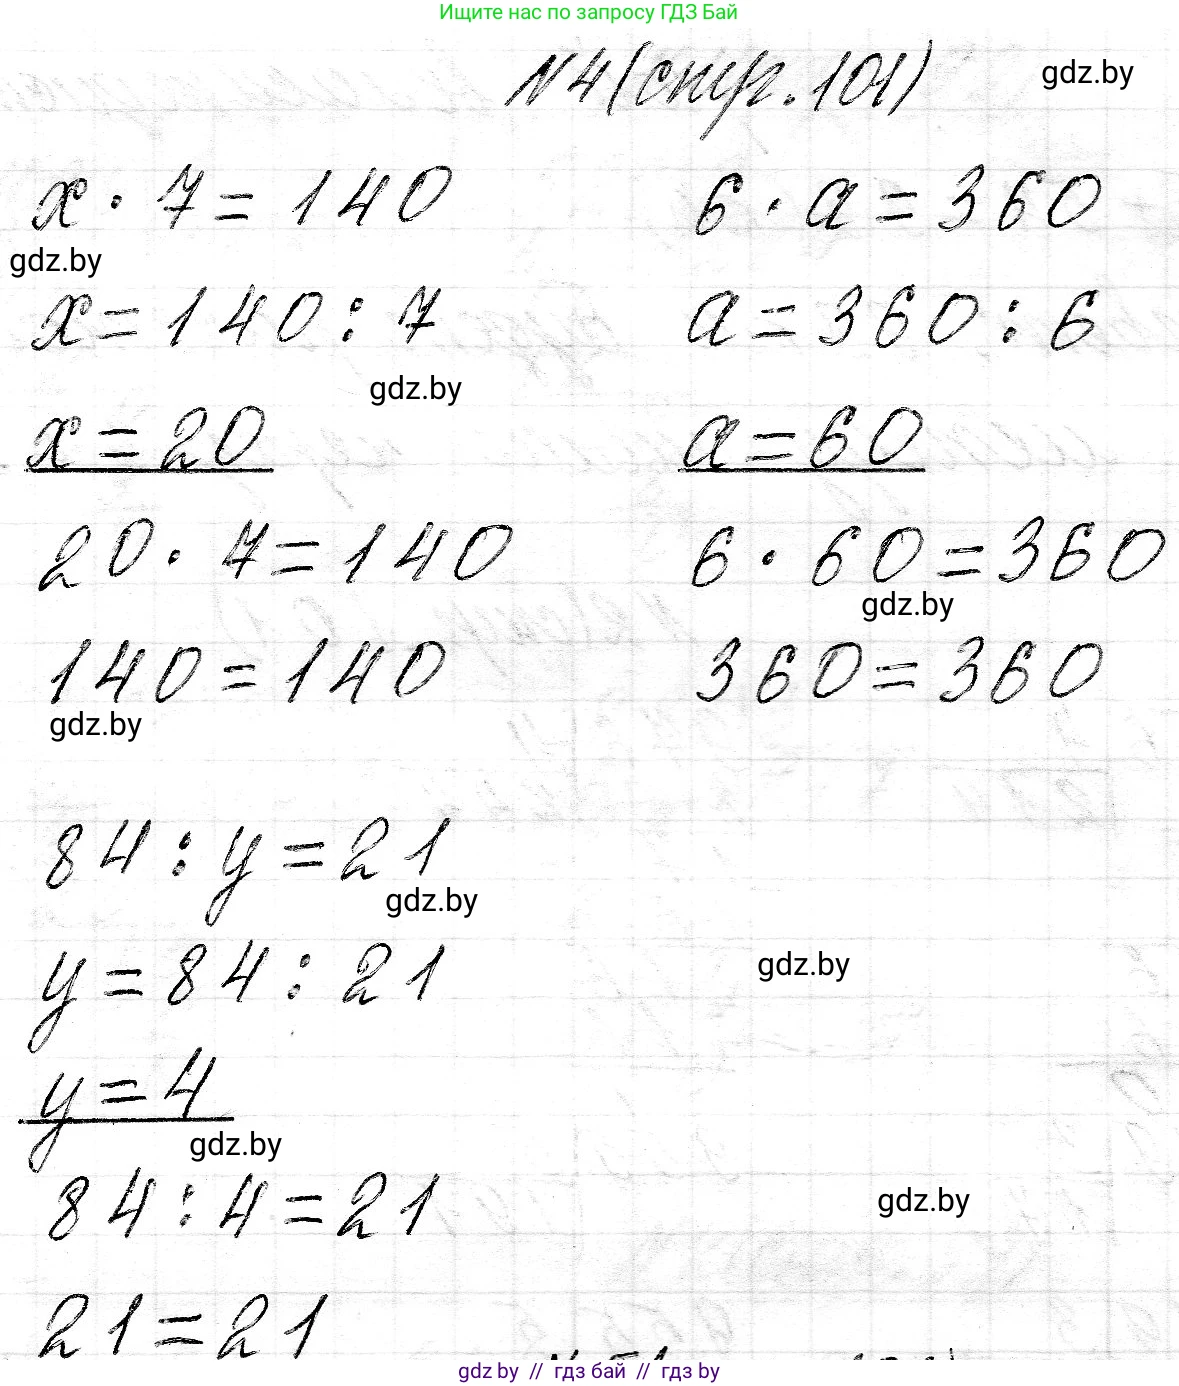 Ищите нас по запросу ГДЗ Бай
N4 (стр. 101)
gdz.by
x · 7 = 140
6 · a = 360
gdz.by
x = 140 : 7
a = 360 : 6
gdz.by
x = 20
a = 60
20 · 7 = 140
6 · 60 = 360
gdz.by
140 = 140
360 = 360
gdz.by
84 : y = 21
gdz.by
y = 84 : 21
gdz.by
y = 4
gdz.by
84 : 4 = 21
gdz.by
21 = 21
gdz.by // гдз бай // гдз by